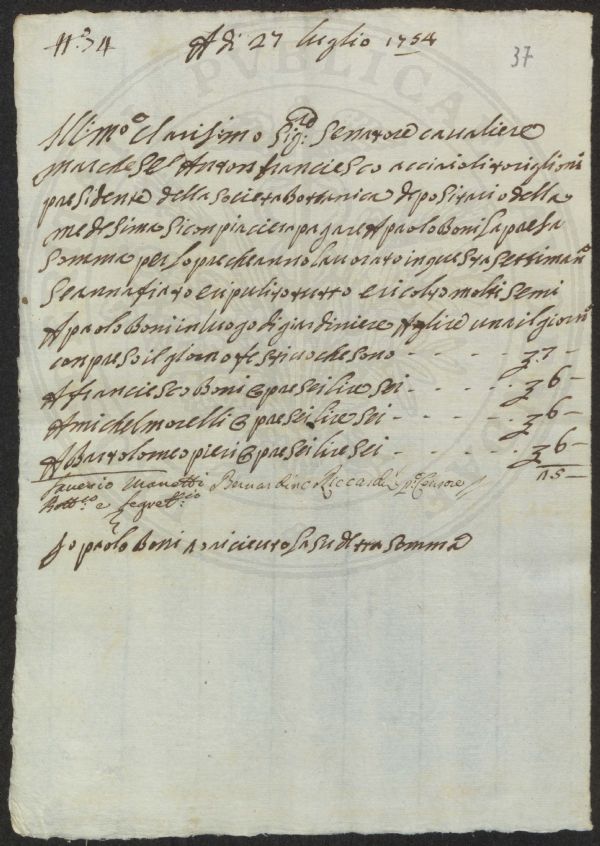 N.o 34
A di 27 luglio 1754
37
Ill:mo Clarisimo Sig:re Senatore cavaliere
marchese Anton franciesco acciaioli toriglioni
presidente della Societa Bottanica depositario della
medesima Si compiaciera pagare A paolo Boni la presa
Somma per lo preche anno lauorato in questa Settiman:a
Se annafiato e ripulito tutto e ricolto molti Semi
A paolo Boni in luogo di giardiniere A lire una il giorn:o
conpreso il giorno festiuo che sono - - - - 7 -
A franciesco Boni e p sei lire sei - - - - 6 -
A michel morelli e p sei lire sei - - - - 6 -
A Bartolomeo pieri e p sei lire sei - - - - 6 -
Saverio Manetti
Bernardino Riccardi p:o Censore
25 -
Bott:co e Segret:rio
Io paolo Boni o riceuto la sudetta somma